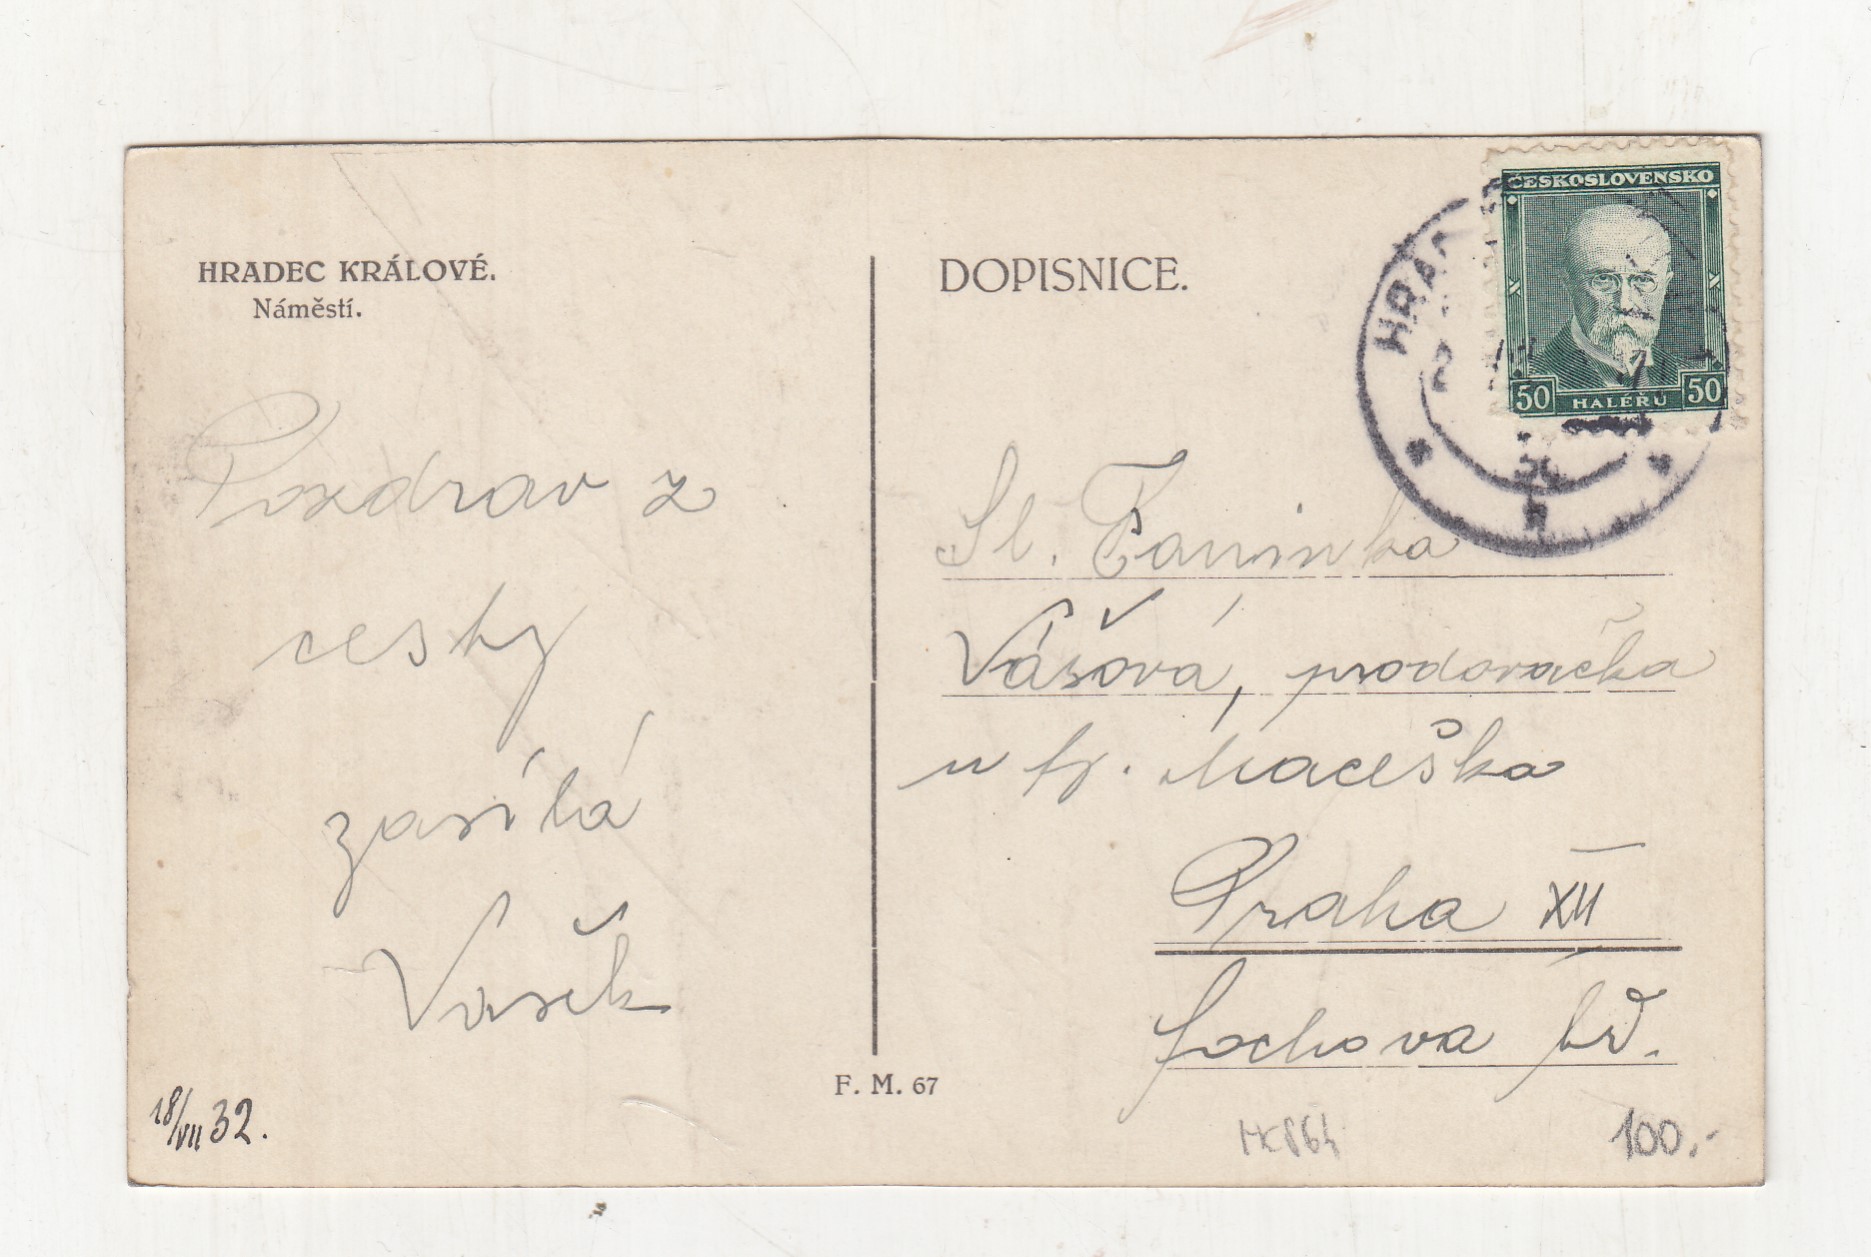 HRADEC KRÁLOVÉ.
Náměstí.
Pozdrav z
cesty
zasílá
Vašík
18/VII 32.
F. M. 67
DOPISNICE.
ČESKOSLOVENSKO
50 HALÉŘŮ 50
HRAD
Sl. Faninka
Vášová, prodavačka
u fy. Maceška
Praha XII
Fochova tř.
100.-